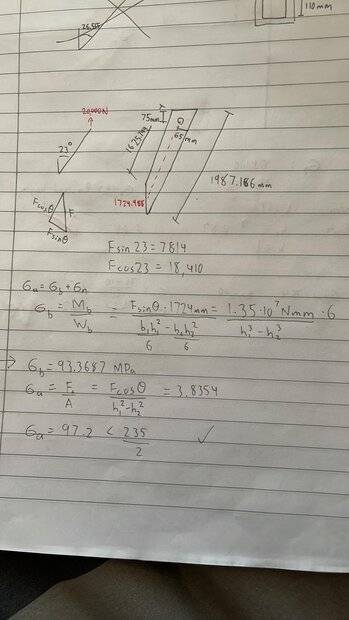 26,565
110mm
20,000N
23°
75mm
θ
65mm
1625mm
1987.186mm
1724.488
Fcosθ F
Fsinθ
Fsin23 = 7814
Fcos23 = 18,410
σa = σb + σn
σb = Mb/Wb = Fsinθ · 1724mm / (b1h1²/6 - b2h2²/6) = 1.35·10⁷Nmm · 6 / (h1³ - h2³)
→ σb = 93.3687 MPa
σa = F/A = Fcosθ / (h1² - h2²) = 3.8354
σa = 97.2 < 235/2 ✓